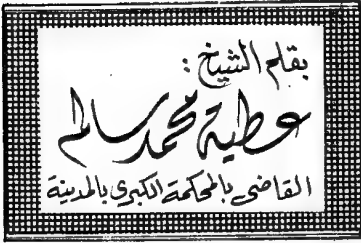 بقلم الشيخ :
عطية محمد سالم
القاضى بالمحكمة الكبرى بالمدينة